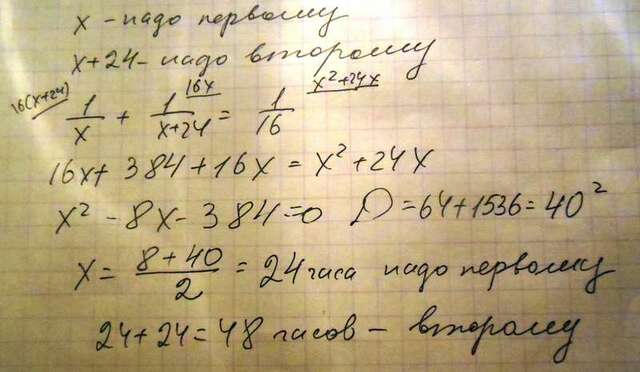 x - надо первому
x+24 - надо второму
16(x+24) 16x x²+24x
1/x + 1/x+24 = 1/16
16x+384+16x = x²+24x
x² - 8x - 384 = 0 D = 64+1536 = 40²
x = 8+40/2 = 24 часа надо первому
24+24 = 48 часов - второму